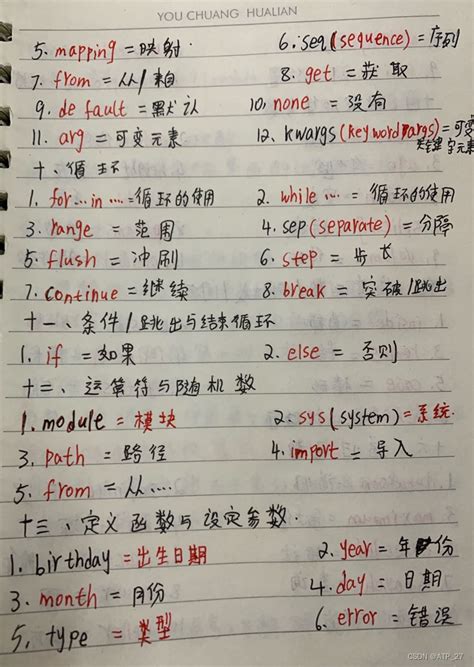 YOU CHUANG HUALIAN
5. mapping = 映射 6. seq (sequence) = 序列
7. from = 从/来自 8. get = 获取
9. default = 默认 10. none = 没有
11. arg = 可变元素 12. kwargs (keyword args) = 可变关键字元素
十、循环
1. for…in… = 循环的使用 2. while … = 循环的使用
3. range = 范围 4. sep (separate) = 分隔
5. flush = 冲刷 6. step = 步长
7. continue = 继续 8. break = 突破/跳出
十一、条件/跳出与结束循环
1. if = 如果 2. else = 否则
十二、运算符与随机数
1. module = 模块 2. sys (system) = 系统.
3. path = 路径 4. import = 导入
5. from = 从….
十三、定义函数与设定参数
1. birthday = 出生日期 2. year = 年份
3. month = 月份 4. day = 日期
5. type = 类型 6. error = 错误
CSDN @ATP_27